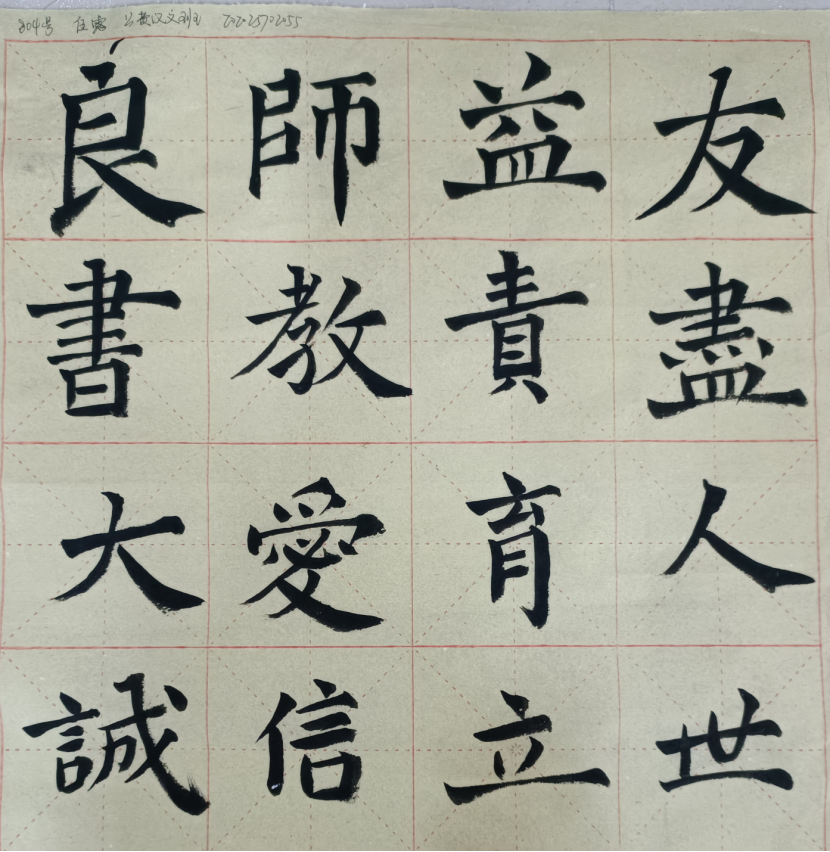 804号 任露 公教汉文班 202025702055
良師益友
書教責盡
大愛育人
誠信立世